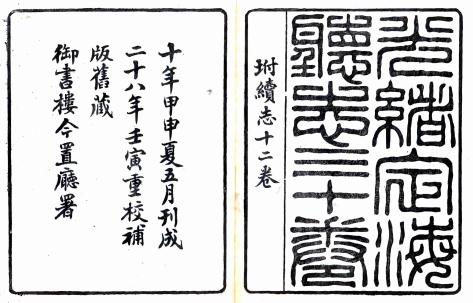 光緒定海
廳志三十卷
坿續志十二卷
十年甲申夏五月刊成
二十八年壬寅重校補
版舊藏
御書樓今置廳署